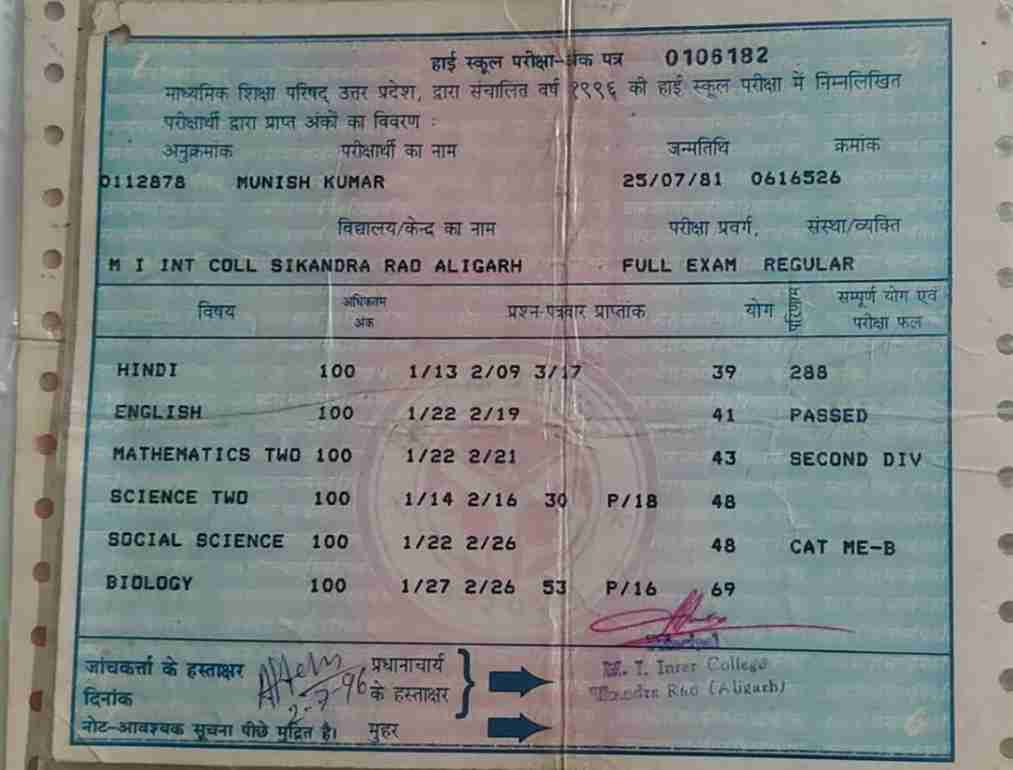 हाई स्कूल परीक्षा-अंक पत्र 0106182
माध्यमिक शिक्षा परिषद् उत्तर प्रदेश, द्वारा संचालित वर्ष १९९६ की हाई स्कूल परीक्षा में निम्नलिखित
परीक्षार्थी द्वारा प्राप्त अंकों का विवरण :
अनुक्रमांक परीक्षार्थी का नाम जन्मतिथि क्रमांक
0112878 MUNISH KUMAR 25/07/81 0616526
विद्यालय/केन्द का नाम परीक्षा प्रवर्ग, संस्था/व्यक्ति
M I INT COLL SIKANDRA RAO ALIGARH FULL EXAM REGULAR
विषय अधिकतम अंक प्रश्न-पत्रवार प्राप्तांक योग सम्पूर्ण योग एवं परीक्षा फल
HINDI 100 1/13 2/09 3/17 39 288
ENGLISH 100 1/22 2/19 41 PASSED
MATHEMATICS TWO 100 1/22 2/21 43 SECOND DIV
SCIENCE TWO 100 1/14 2/16 30 P/18 48
SOCIAL SCIENCE 100 1/22 2/26 48 CAT ME-B
BIOLOGY 100 1/27 2/26 53 P/16 69
जांचकर्त्ता के हस्ताक्षर प्रधानाचार्य
दिनांक 2-7-96 के हस्ताक्षर
M. I. Inter College
Rao (Aligarh)
नोट-आवश्यक सूचना पीछे मुद्रित है। मुहर